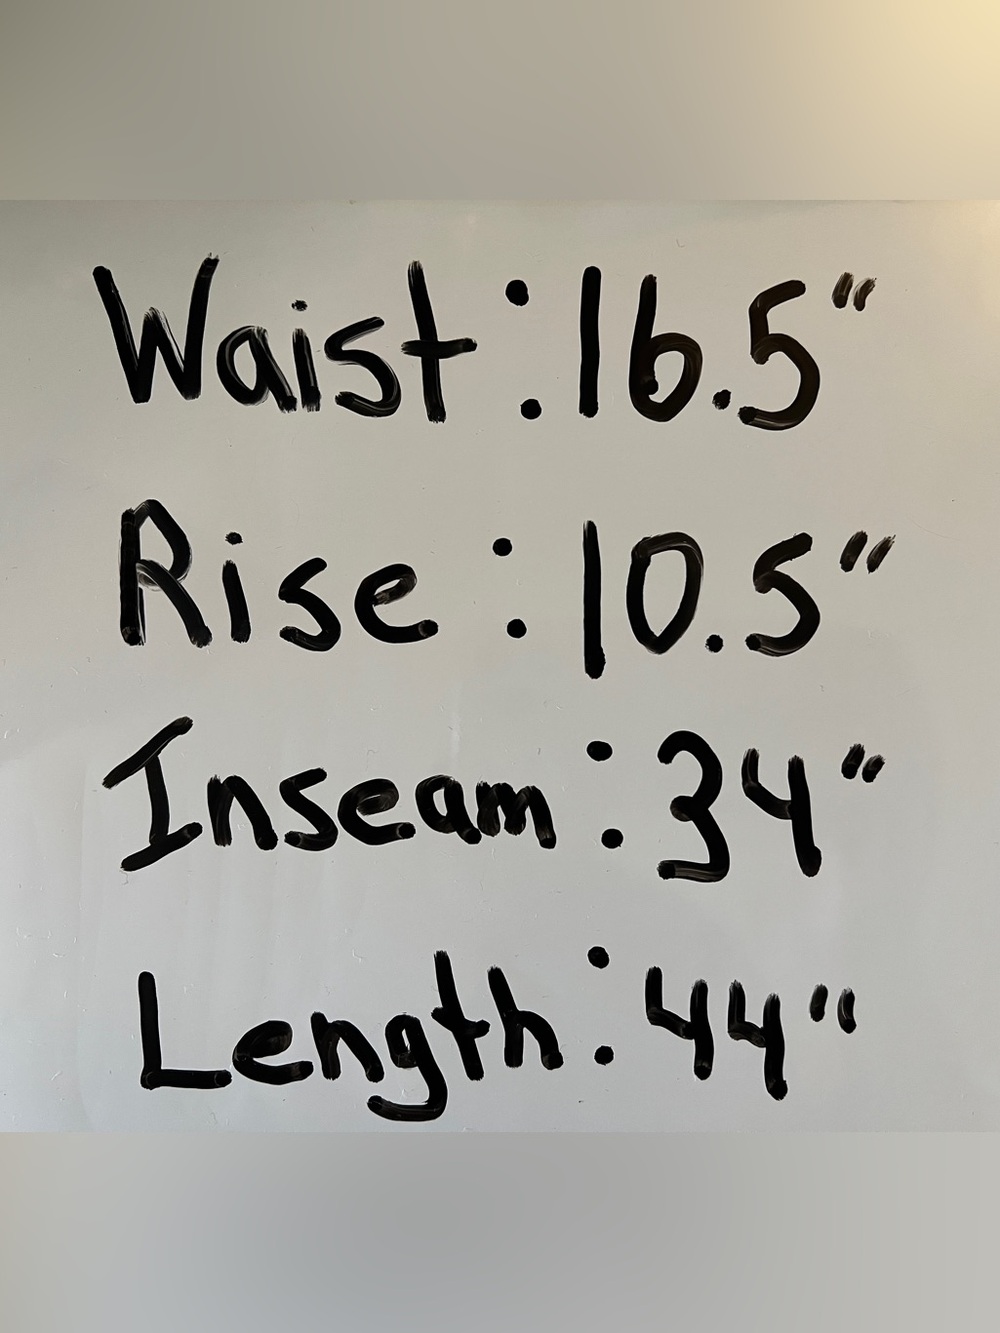 Waist : 16.5"
Rise : 10.5"
Inseam : 34"
Length : 44"